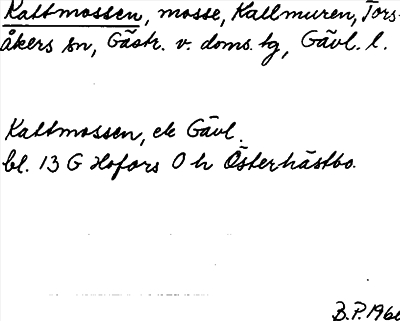 Kattmossen, mosse, Kallmuren, Tors-
åkers sn, Gästr. v. doms. tg, Gävl. l.
Kattmossen, ek Gävl.
bl. 13 G Hofors 0 h Österhästbo.
B.P. 196